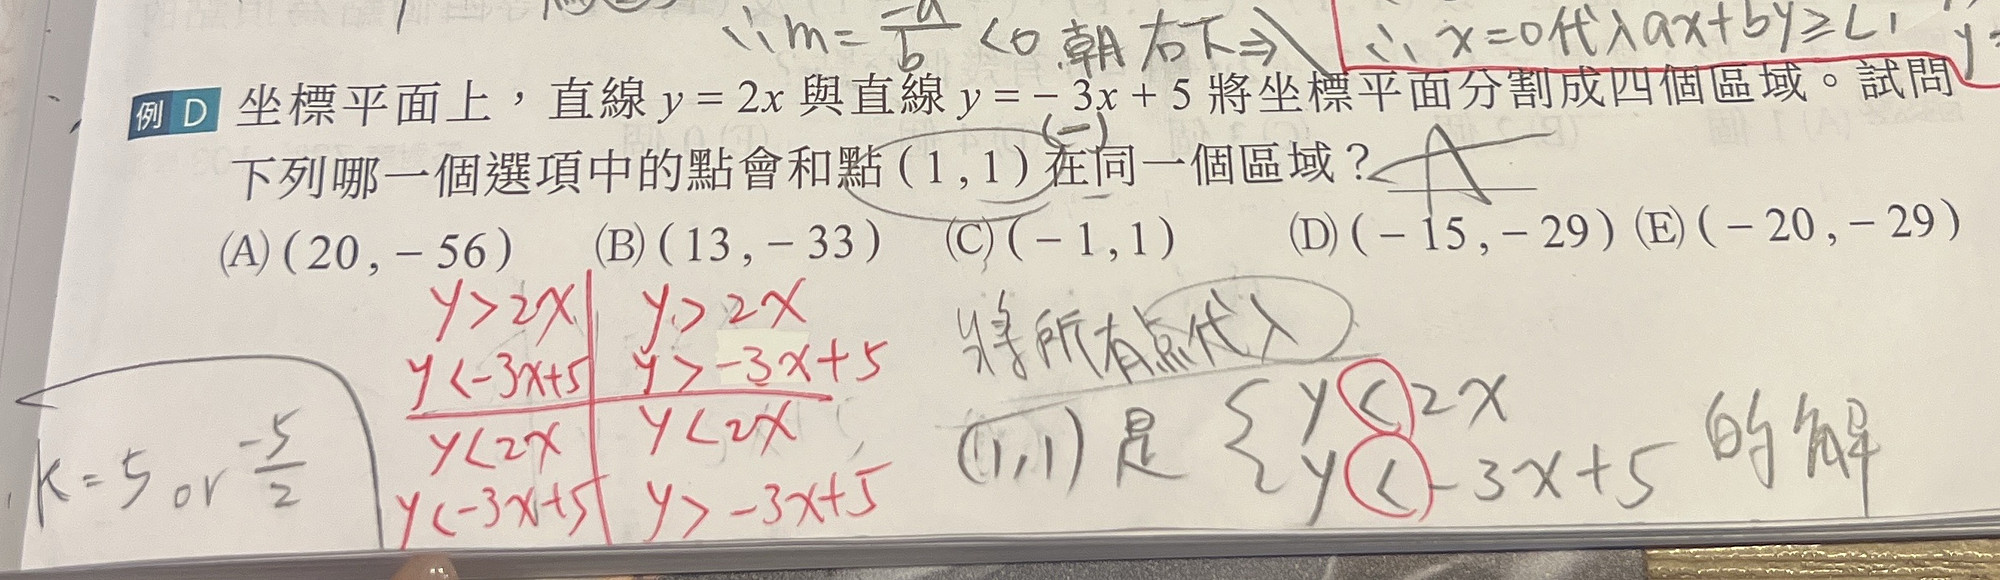 ∴m = -a/b <0 朝右下⇒\
∴ x=0代入ax+by≥c,
例 D 坐標平面上，直線 y = 2x 與直線 y = - 3x + 5 將坐標平面分割成四個區域。試問
(-)
下列哪一個選項中的點會和點 ( 1 , 1 ) 在同一個區域？ A
(A) ( 20 , - 56 ) (B) ( 13 , - 33 ) (C) ( - 1 , 1 ) (D) ( - 15 , - 29 ) (E) ( - 20 , - 29 )
y>2x y>2x
y<-3x+5 y>-3x+5
y<2x y<2x
y<-3x+5 y>-3x+5
將所有点代入
(1,1) 是 { y<2x
y<-3x+5 的解
k=5 or -5/2